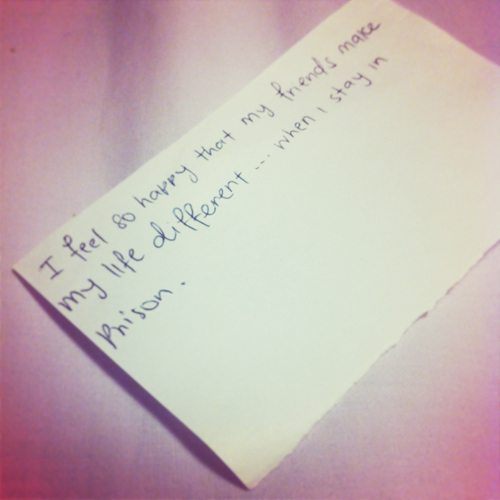 I feel so happy that my friends make
my life different ... when i stay in
Prison.